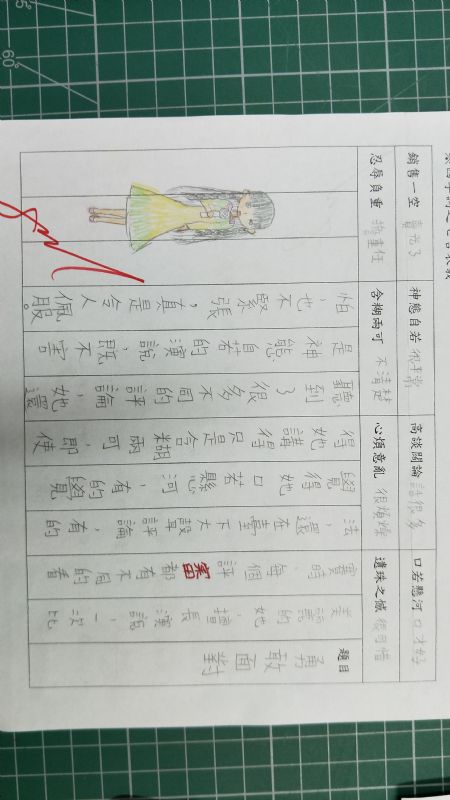 銷售一空 賣光了 神態自若 很正常 高談闊論 話很多 口若懸河 口才好
忍辱負重 擔重任 含糊兩可 不清楚 心煩意亂 很煩燥 遺珠之憾 很可惜
題目 勇敢面對
美麗的她，擅長演說，一次比
賽時，每個評審都有不同的看
法，還在臺下大聲評論，有的
覺得她口若懸河，有的覺
得她講得只是含糊兩可，即使
聽到了很多不同的評論，她還
是神態自若的演說，既不害
怕，也不緊張，真是令人佩服。
60°